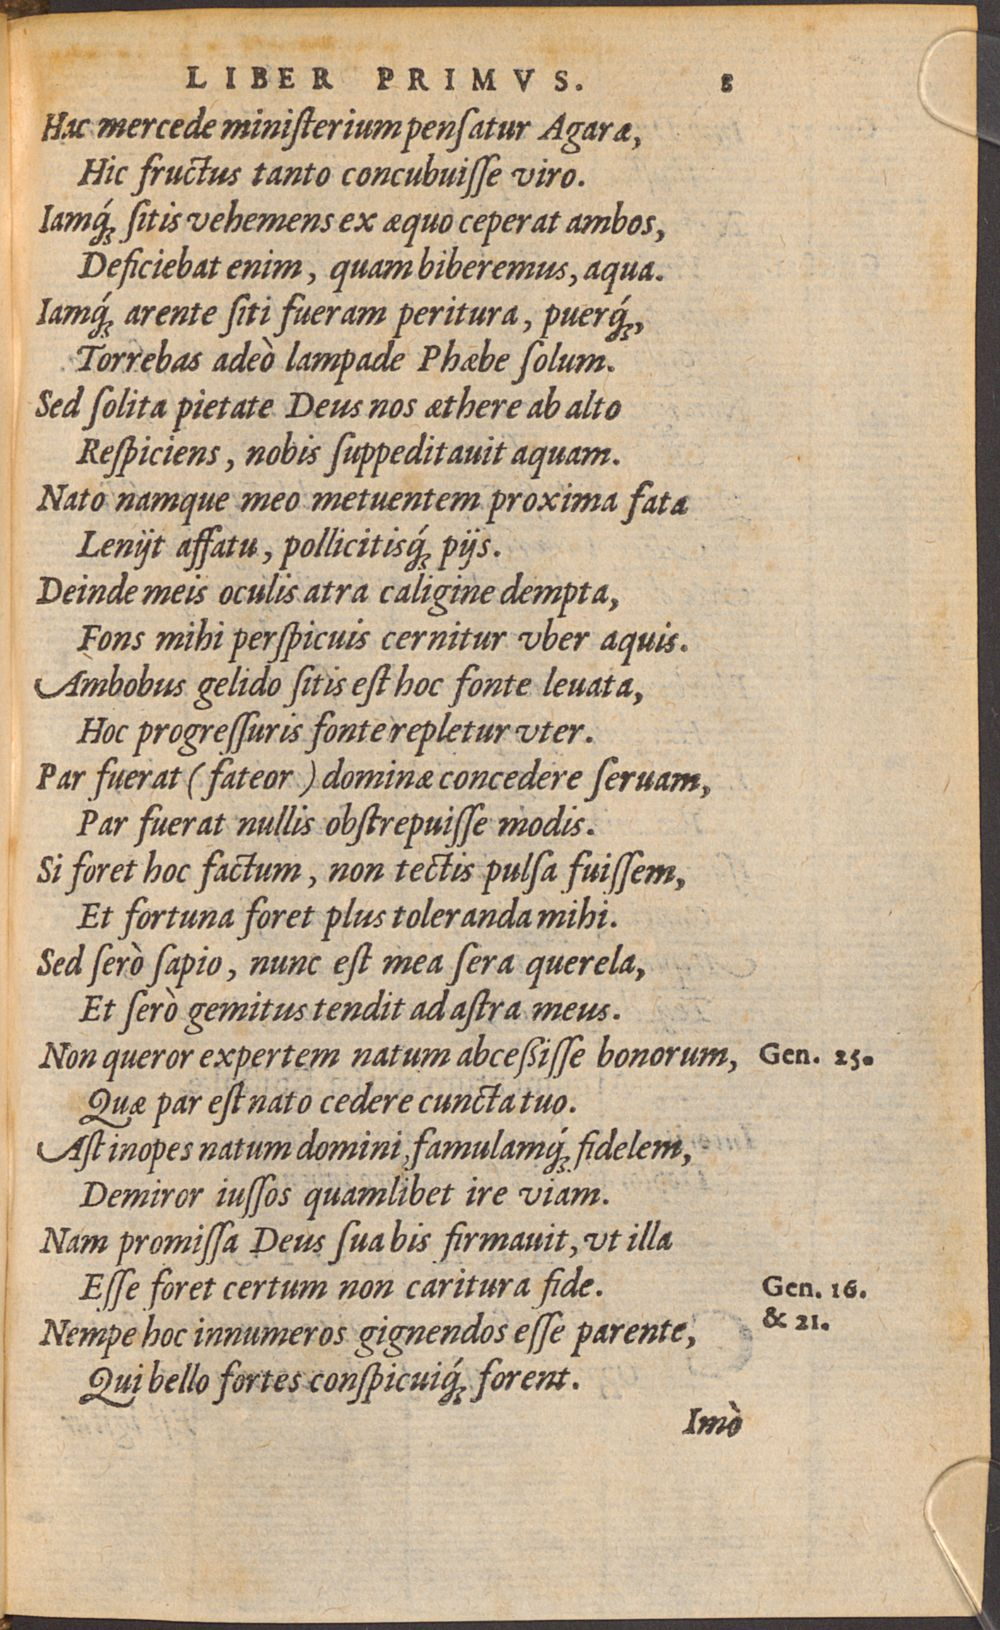 LIBER PRIMVS. 8
Hac mercede miniſterium penſatur Agaræ,
Hic fructus tanto concubuiſſe viro.
Iamq́; ſitis vehemens ex æquo ceperat ambos,
Deficiebat enim, quam biberemus, aqua.
Iamq́; arente ſiti fueram peritura, puerq́;,
Torrebas adeò lampade Phæbe ſolum.
Sed ſolita pietate Deus nos æthere ab alto
Reſpiciens, nobis ſuppeditauit aquam.
Nato namque meo metuentem proxima fata
Lenijt affatu, pollicitisq́; pijs.
Deinde meis oculis atra caligine dempta,
Fons mihi perſpicuis cernitur vber aquis.
Ambobus gelido ſitis eſt hoc fonte leuata,
Hoc progreſſuris fonte repletur vter.
Par fuerat (fateor) dominæ concedere ſeruam,
Par fuerat nullis obſtrepuiſſe modis.
Si foret hoc factum, non tectis pulſa fuiſſem,
Et fortuna foret plus toleranda mihi.
Sed ſerò ſapio, nunc eſt mea ſera querela,
Et ſerò gemitus tendit ad aſtra meus.
Non queror expertem natum abceßiſſe bonorum, Gen. 25.
Quæ par eſt nato cedere cuncta tuo.
Aſt inopes natum domini, famulamq́; fidelem,
Demiror iuſſos quamlibet ire viam.
Nam promiſſa Deus ſua bis firmauit, vt illa
Eſſe foret certum non caritura fide. Gen. 16.
& 21.
Nempe hoc innumeros gignendos eſſe parente,
Qui bello fortes conſpicuiq́; forent.
Imò